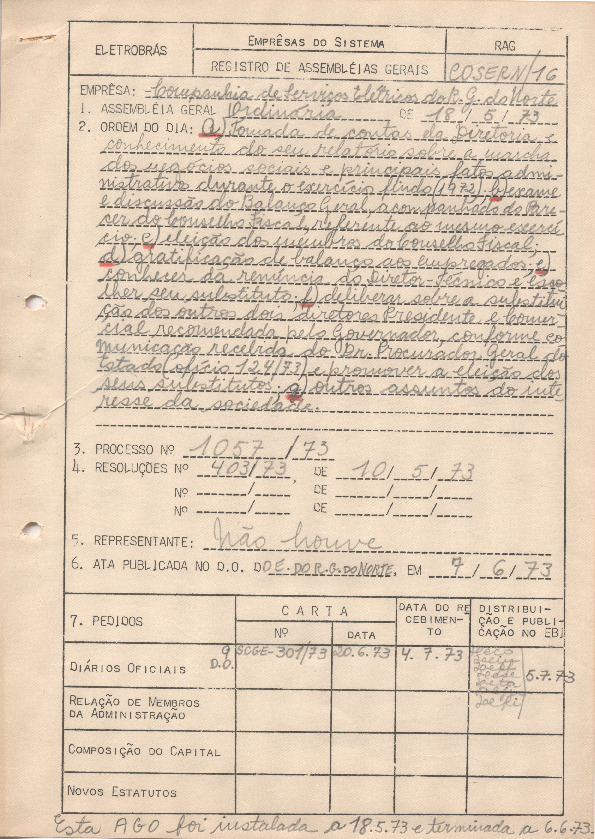 ELETROBRÁS
EMPRÊSAS DO SISTEMA
RAG
REGISTRO DE ASSEMBLÉIAS GERAIS
COSERN/16
EMPRÊSA: Companhia de Serviços Elétricos do R.G. do Norte
1. ASSEMBLÉIA GERAL Ordinária DE 18 / 5 / 73
2. ORDEM DO DIA: a) Tomada de contas da Diretoria e
conhecimento do seu relatório sobre a marcha
dos negócios sociais e principais fatos admi-
nistrativo durante o exercício findo (1972); b) exame
e discussão do Balanço Geral, acompanhado do Pare-
cer do Conselho Fiscal, referente ao mesmo exercí-
cio; c) eleição dos membros do Conselho Fiscal;
d) gratificação de balanço aos empregados; e)
conhecer da renúncia do Diretor-Técnico e esco
lher seu substituto; f) deliberar sobre a substitui
ção dos outros dois diretores Presidente e Comer-
cial recomendada pelo Governador, conforme co
municação recebida do Dr. Procurador Geral do
Estado (ofício 124/73) e promover a eleição dos
seus substitutos; g) outros assuntos do inte
resse da sociedade.
3. PROCESSO Nº 1057 /73
4. RESOLUÇÕES Nº 403/73, DE 10/ 5 / 73
Nº / DE / /
Nº / DE / /
5. REPRESENTANTE: Não houve
6. ATA PUBLICADA NO D.O. DO E. DO R.G. DO NORTE, EM 7 / 6 / 73
7. PEDIDOS
CARTA
Nº
DATA
DATA DO RE
CEBIMEN-
TO
DISTRIBUI-
ÇÃO E PUBLI-
CAÇÃO NO EBI
DIÁRIOS OFICIAIS
9 D.O.
SCGE-301/73
20.6.73
4.7.73
5.7.73
RELAÇÃO DE MEMBROS
DA ADMINISTRAÇÃO
COMPOSIÇÃO DO CAPITAL
NOVOS ESTATUTOS
Esta AGO foi instalada a 18.5.73 e terminada a 6.6.73.